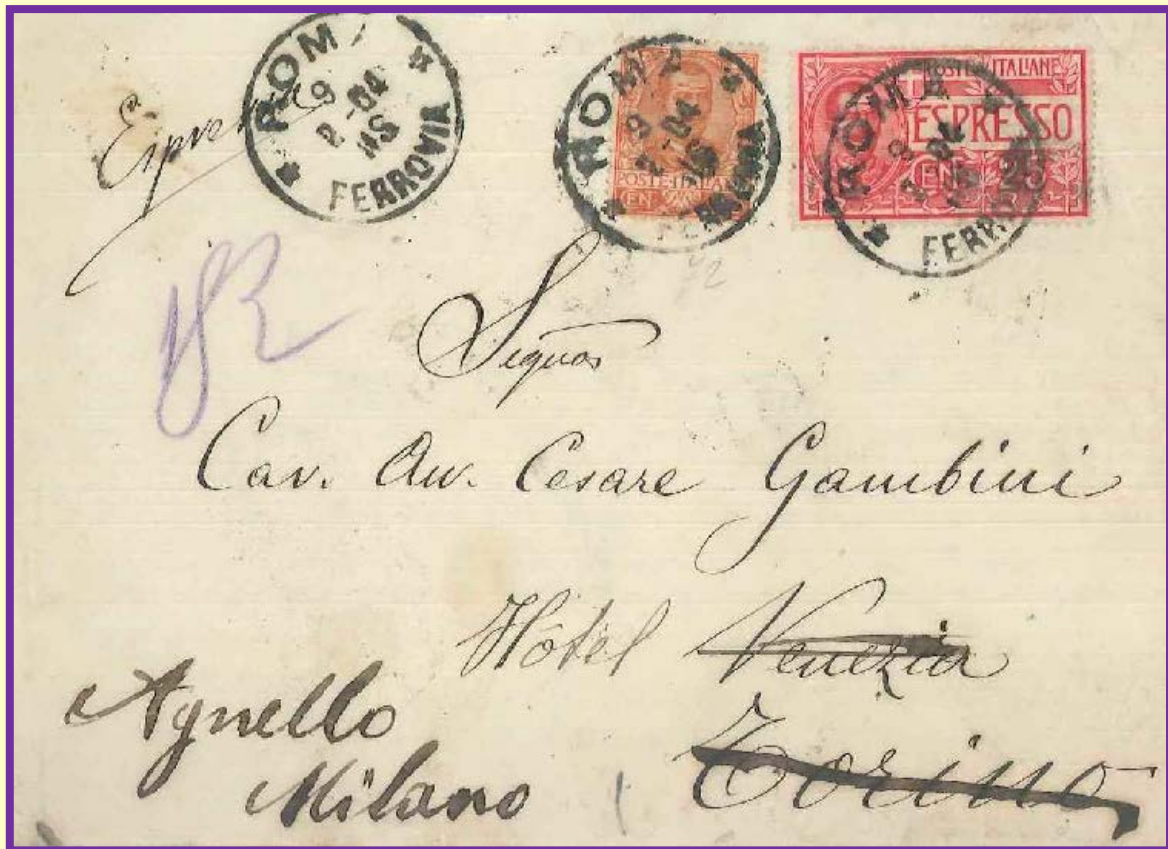 Espresso
ROMA
9
2-04
MS
FERROVIA
ROMA
9
2-04
FERROVIA
POSTE·ITALIANE
CEN
POSTE ITALIANE
ESPRESSO
CEN 25
ROMA
9
FERRO
72
Signor
Cav. Avv. Cesare Gambini
Hôtel Venezia
Torino
Agnello
Milano